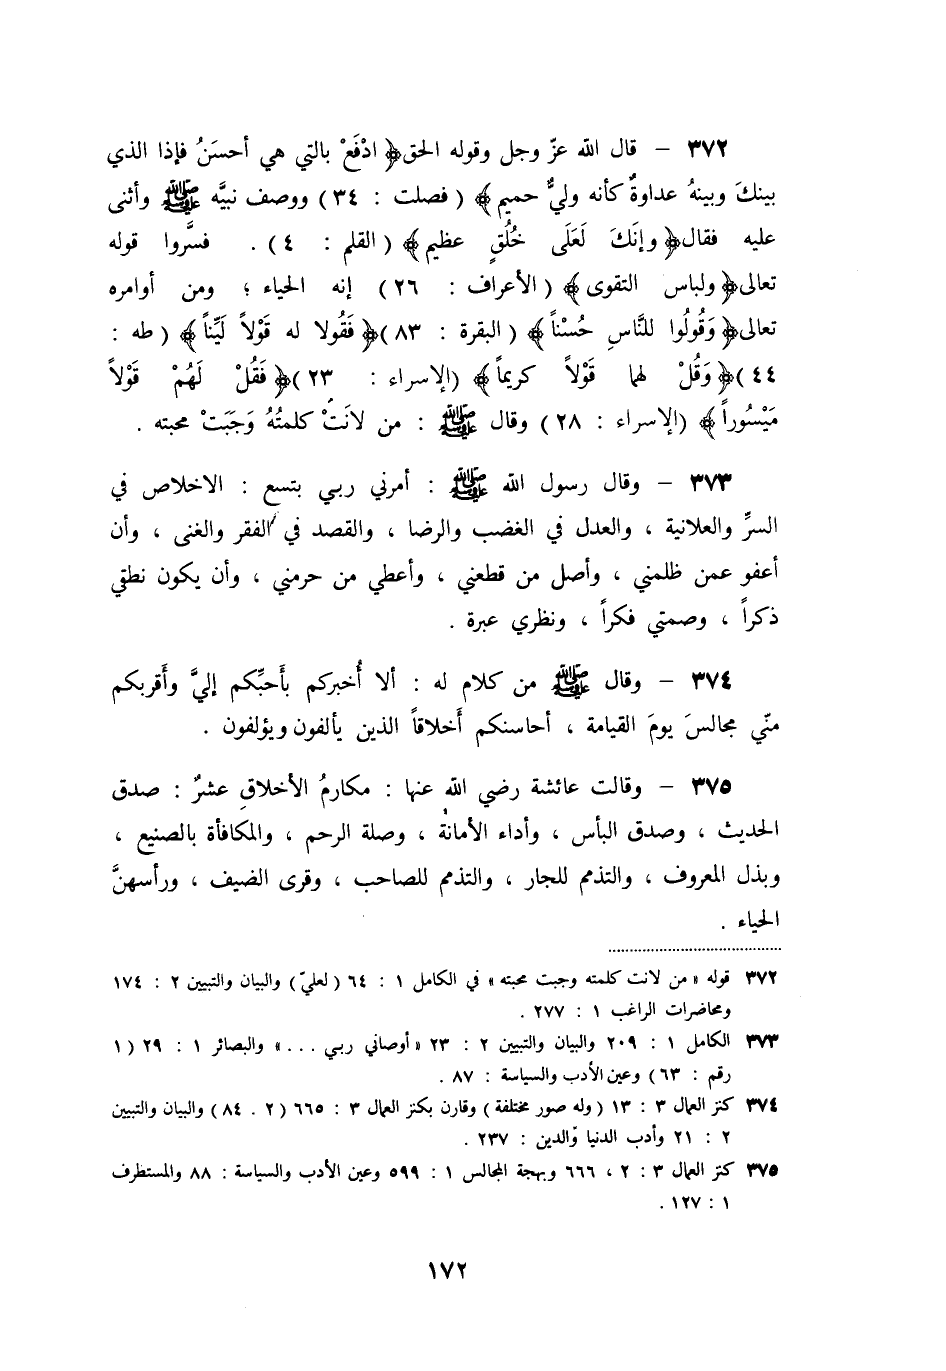 ٣٧٢ – قال الله عزّ وجل وقوله الحق ﴿ ادْفَعْ بالتي هي أحسَنُ فإذا الذي
بينكَ وبينهُ عداوةٌ كأنه وليٌّ حميم ﴾ ( فصلت : ٣٤ ) ووصف نبيَّه ﷺ وأثنى
عليه فقال ﴿ وإنَكَ لَعَلَى خُلُقٍ عظيم ﴾ ( القلم : ٤ ) . فسَّروا قوله
تعالى ﴿ ولباس التقوى ﴾ ( الأعراف : ٢٦ ) إنه الحياء ؛ ومن أوامره
تعالى ﴿ وَقُولُوا للنَّاسِ حُسْناً ﴾ ( البقرة : ٨٣ ) ﴿ فَقُولا له قوْلاً لَيِّناً ﴾ ( طه :
٤٤ ) ﴿ وَقُلْ لهما قوْلاً كريماً ﴾ (الإسراء : ٢٣ ) ﴿ فَقُلْ لَهُمْ قوْلاً
مَيْسُوراً ﴾ (الإسراء : ٢٨ ) وقال ﷺ : من لانَتْ كلمتُهُ وَجَبَتْ محبته .
٣٧٣ – وقال رسول الله ﷺ : أمرني ربي بتسع : الاخلاص في
السرِّ والعلانية ، والعدل في الغضب والرضا ، والقصد في الفقر والغنى ، وأن
أعفو عمن ظلمني ، وأصل من قطعني ، وأعطي من حرمني ، وأن يكون نطقي
ذكراً ، وصمتي فكراً ، ونظري عبرة .
٣٧٤ – وقال ﷺ من كلام له : ألا أُخبركم بأَحبِّكم إليَّ وأَقربكم
منّي مجالسَ يومَ القيامة ، أحاسنكم أَخلاقاً الذين يألفون ويؤلفون .
٣٧٥ – وقالت عائشة رضي الله عنها : مكارمُ الأخلاقِ عشرٌ : صدق
الحديث ، وصدق البأس ، وأداء الأمانة ، وصلة الرحم ، والمكافأة بالصنيع ،
وبذل المعروف ، والتذمم للجار ، والتذمم للصاحب ، وقرى الضيف ، ورأسهنَّ
الحياء .
٣٧٢ قوله « من لانت كلمته وجبت محبته » في الكامل ١ : ٦٤ ( لعليّ ) والبيان والتبيين ٢ : ١٧٤
ومحاضرات الراغب ١ : ٢٧٧ .
٣٧٣ الكامل ١ : ٢٠٩ والبيان والتبيين ٢ : ٢٣ « أوصاني ربي ... » والبصائر ١ : ٢٩ ( ١
رقم : ٦٣ ) وعين الأدب والسياسة : ٨٧ .
٣٧٤ كنز العمال ٣ : ١٣ ( وله صور مختلفة ) وقارن بكنز العمال ٣ : ٦٦٥ ( ٢ . ٨٤ ) والبيان والتبيين
٢ : ٢١ وأدب الدنيا والدين : ٢٣٧ .
٣٧٥ كنز العمال ٣ : ٢ ، ٦٦٦ وبهجة المجالس ١ : ٥٩٩ وعين الأدب والسياسة : ٨٨ والمستطرف
١ : ١٢٧ .
١٧٢